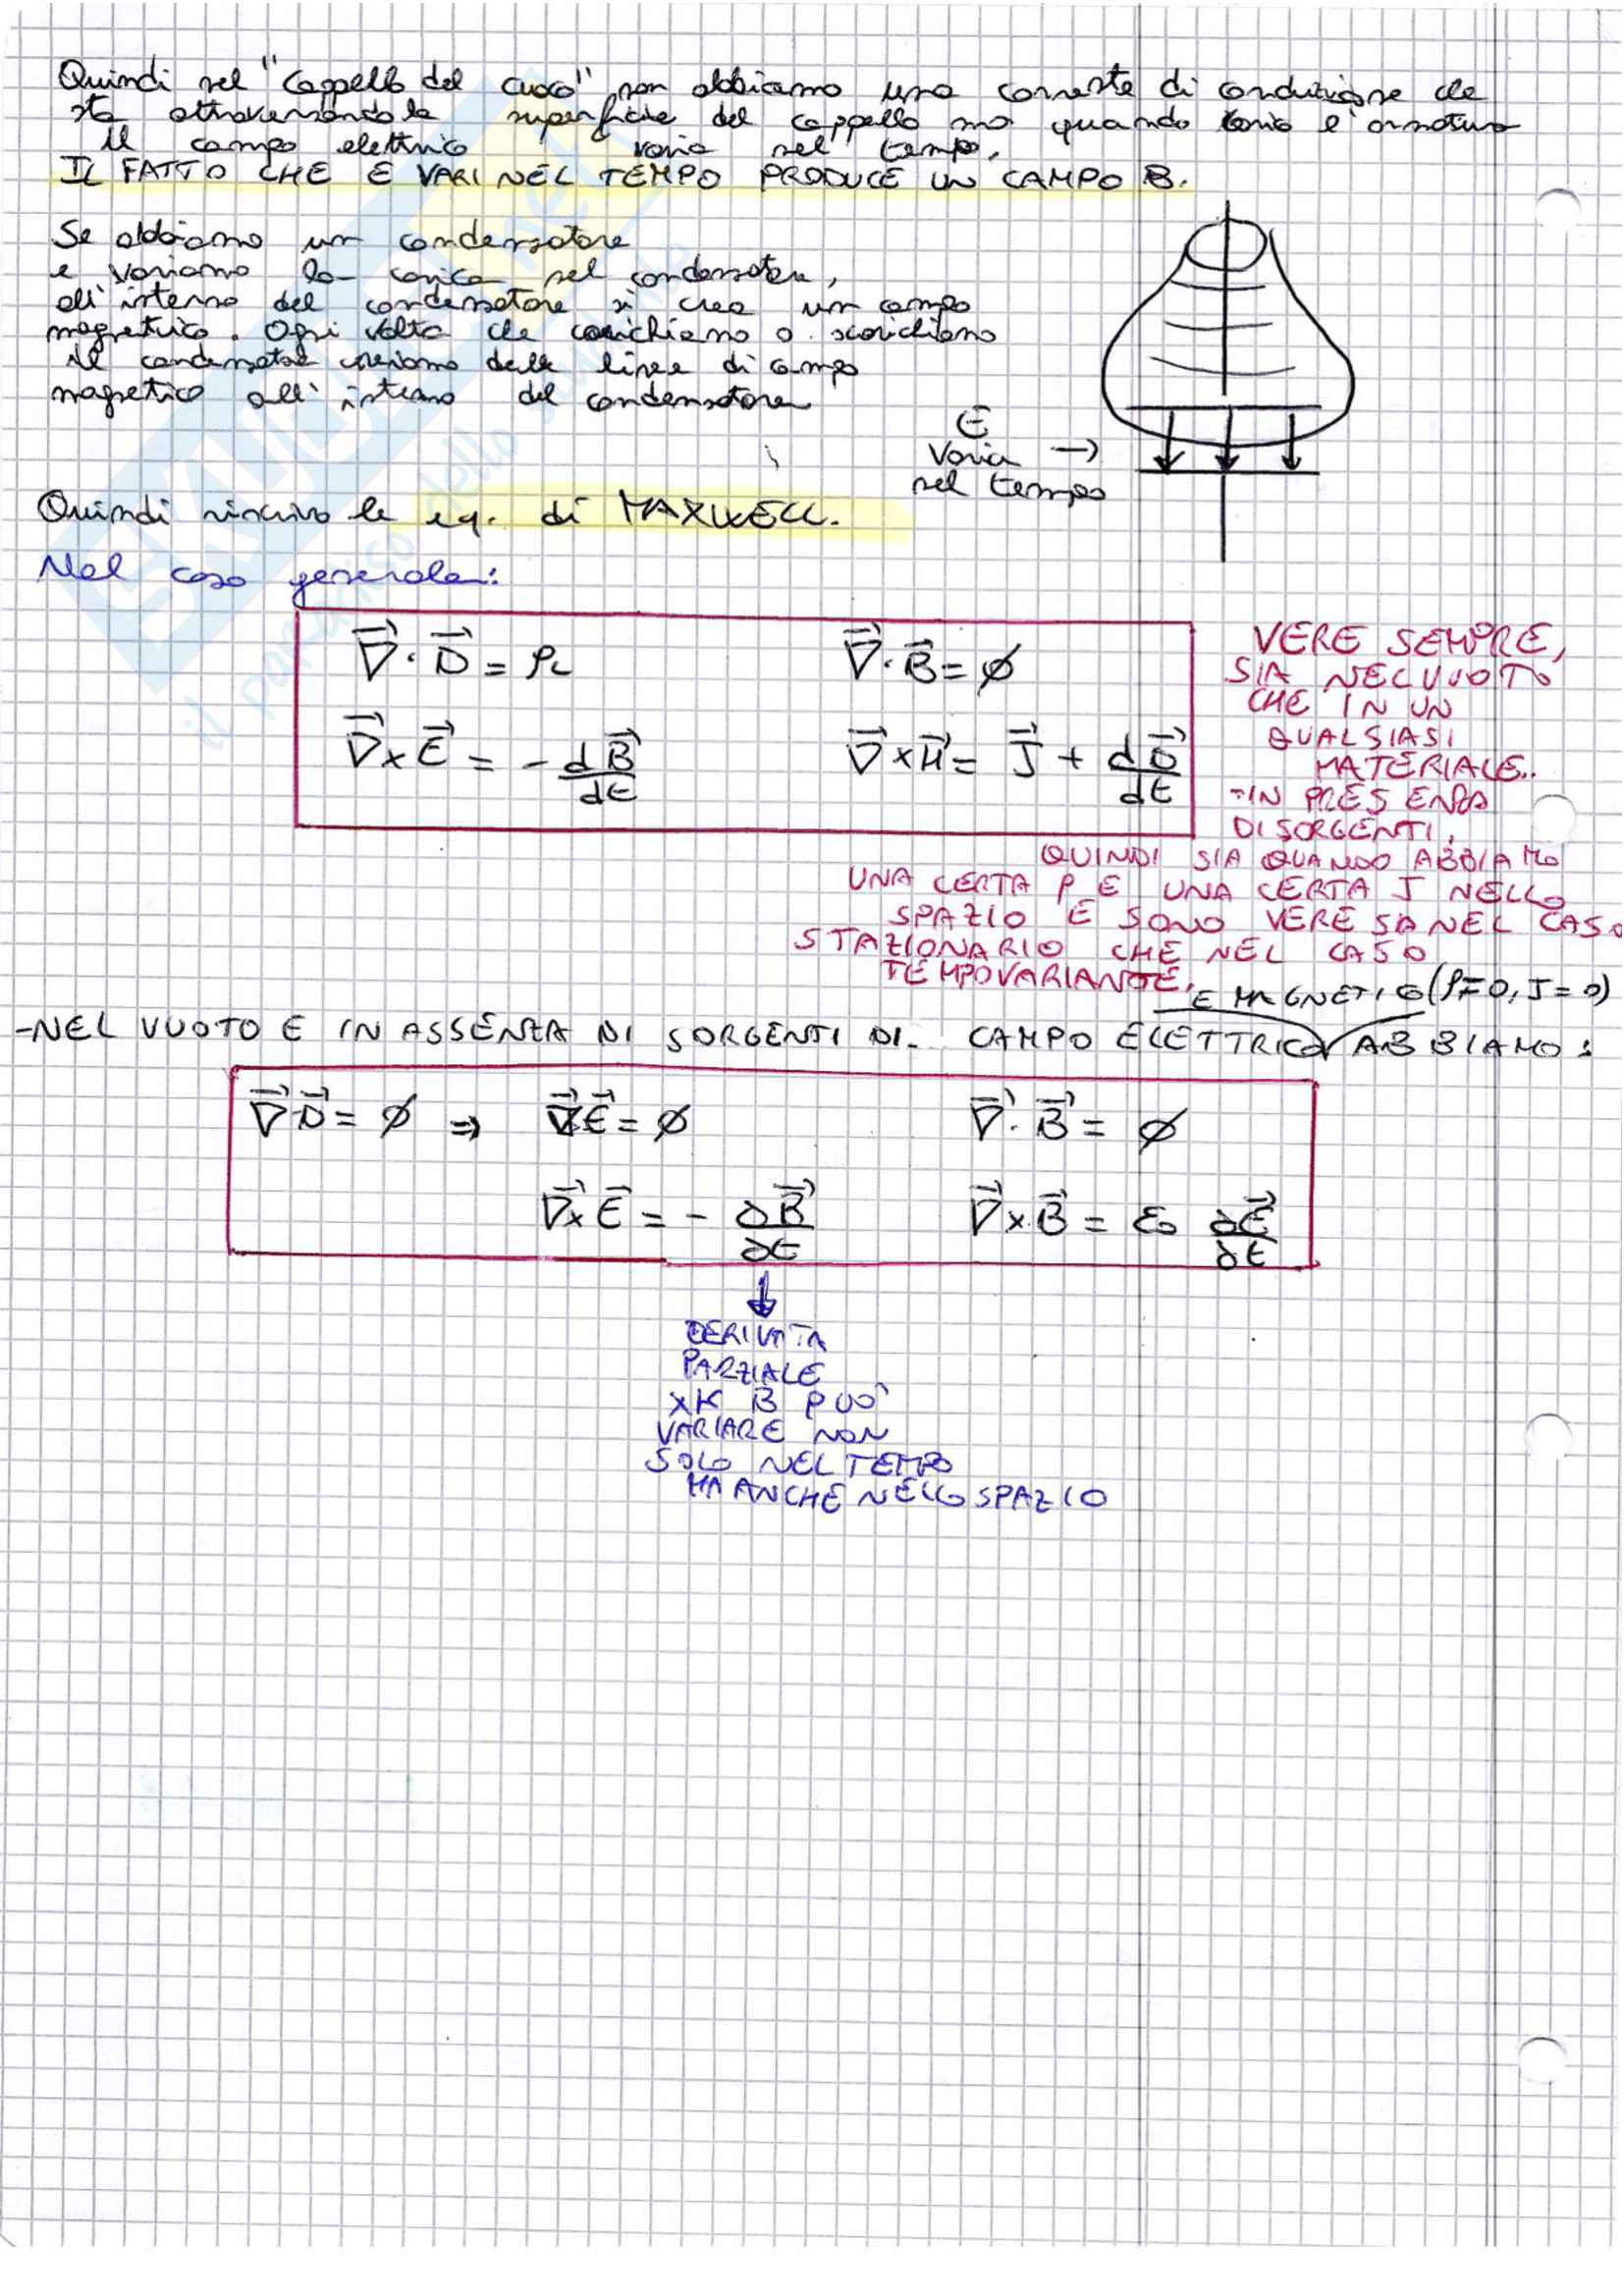 Quindi nel "cappello del cuoco" non abbiamo una corrente di conduzione che
sta attraversando la superficie del cappello ma quando carico l'armatura
il campo elettrico varia nel tempo.
IL FATTO CHE E VARI NEL TEMPO PRODUCE UN CAMPO B.
Se abbiamo un condensatore
e variamo la carica nel condensatore,
all'interno del condensatore si crea un campo
magnetico. Ogni volta che carichiamo o scarichiamo
il condensatore creiamo delle linee di campo
magnetico all'interno del condensatore
E
varia →
nel tempo
Quindi riscrivo le eq. di MAXWELL.
Nel caso generale:
∇⃗·D⃗ = ρL ∇⃗·B⃗ = ∅
∇⃗×E⃗ = - dB⃗/dt ∇⃗×H⃗ = J⃗ + dD⃗/dt
VERE SEMPRE,
SIA NEL VUOTO
CHE IN UN
QUALSIASI
MATERIALE..
-IN PRESENZA
DI SORGENTI,
QUINDI SIA QUANDO ABBIAMO
UNA CERTA ρ E UNA CERTA J NELLO
SPAZIO E SONO VERE SIA NEL CASO
STAZIONARIO CHE NEL CASO
TEMPOVARIANTE.
E MAGNETICO (ρ=0, J=0)
-NEL VUOTO E IN ASSENZA DI SORGENTI DI.. CAMPO ELETTRICO ABBIAMO:
∇⃗·D⃗ = ∅ ⇒ ∇⃗·E⃗ = ∅ ∇⃗·B⃗ = ∅
∇⃗×E⃗ = - ∂B⃗/∂t ∇⃗×B⃗ = ε₀ ∂E⃗/∂t
↓
DERIVATA
PARZIALE
XK B PUO'
VARIARE NON
SOLO NEL TEMPO
MA ANCHE NELLO SPAZIO